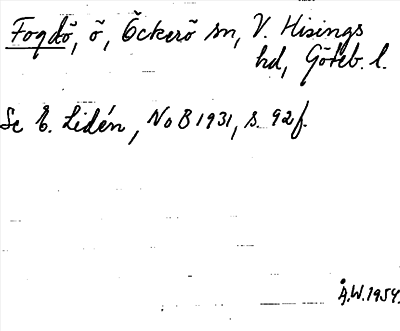 Fogdö, ö, Öckerö sn, V. Hisings
hd, Göteb. l.
Se E. Lidén, NoB 1931, s. 92 f.
Å.W. 1954.